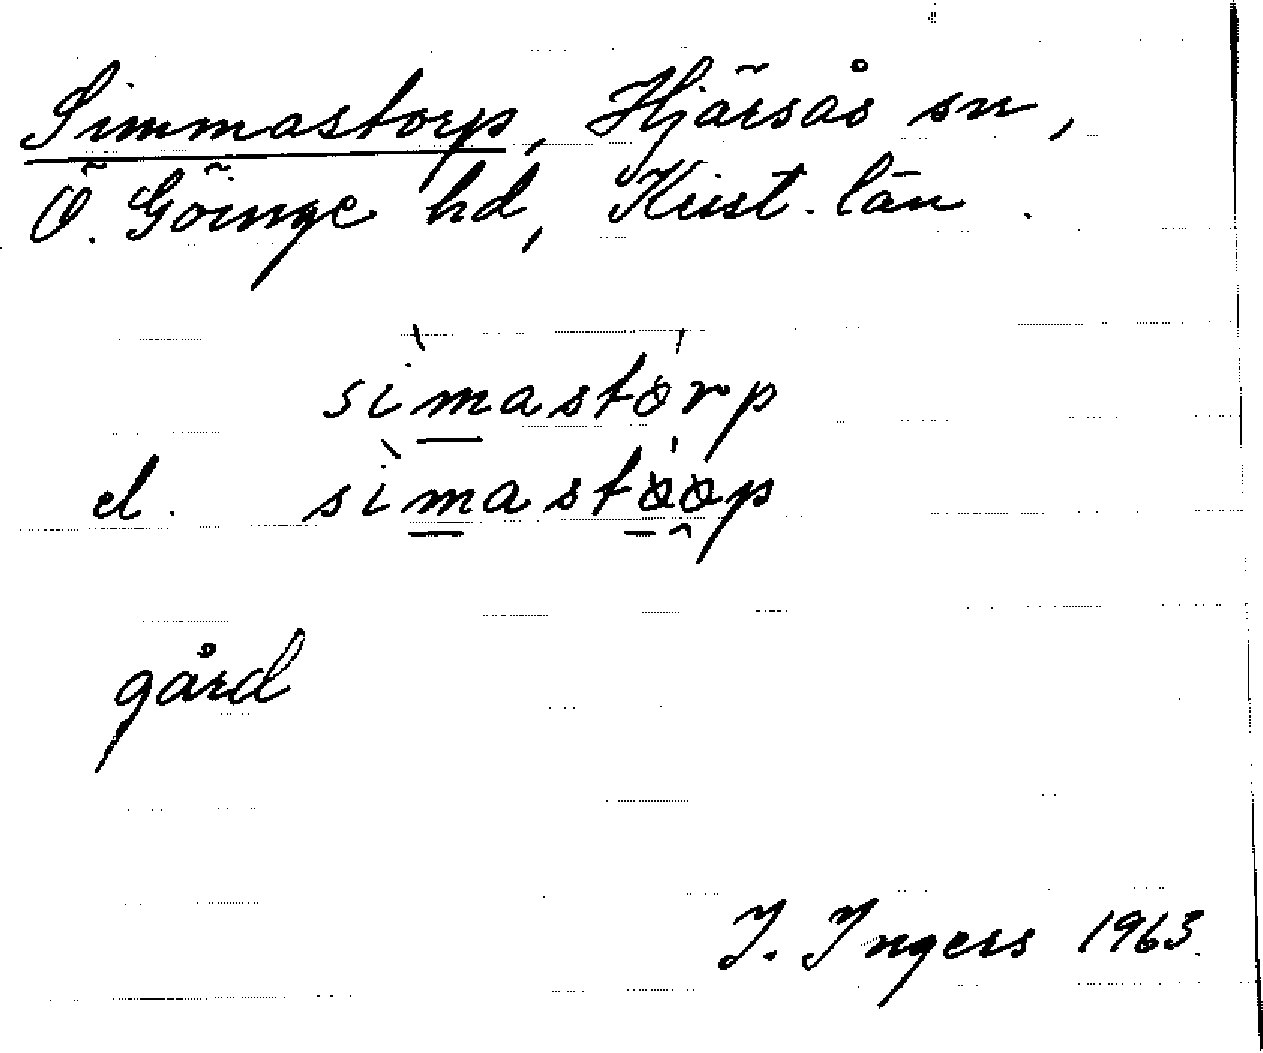 Simmastorp, Hjärsås sn,
Ö. Göinge hd, Krist. län.
sìmastó̤rp
el. sìmastö́öp
gård
I. Ingers 1963